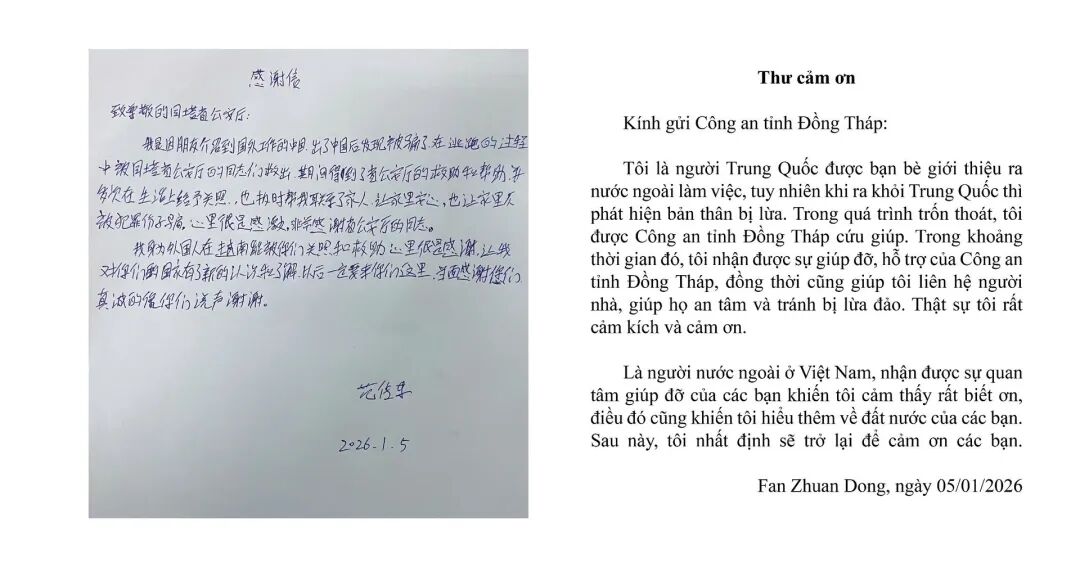 感谢信
致尊敬的同塔省公安厅:
我是通朋友介绍到国外工作的中国,出了中国后发现被骗了.在逃跑的过程
中被同塔省公安厅的同志们救出.其间得到了省公安厅的救助和帮助,并
多次在生活上给予关照.也执时帮我联系了家人,让家里安心,也让家里不
被犯罪份子骗.心里很是感激,非常感谢省公安厅的同志.
我身为外国人在越南能被你们关照和救助心里很是感谢,让我
对你们的国家有了新的认识和了解.以后一定要来你们这里,当面感谢你们
真诚的像你们说声谢谢.
2026.1.5
Thư cảm ơn
Kính gửi Công an tỉnh Đồng Tháp:
Tôi là người Trung Quốc được bạn bè giới thiệu ra
nước ngoài làm việc, tuy nhiên khi ra khỏi Trung Quốc thì
phát hiện bản thân bị lừa. Trong quá trình trốn thoát, tôi
được Công an tỉnh Đồng Tháp cứu giúp. Trong khoảng
thời gian đó, tôi nhận được sự giúp đỡ, hỗ trợ của Công an
tỉnh Đồng Tháp, đồng thời cũng giúp tôi liên hệ người
nhà, giúp họ an tâm và tránh bị lừa đảo. Thật sự tôi rất
cảm kích và cảm ơn.
Là người nước ngoài ở Việt Nam, nhận được sự quan
tâm giúp đỡ của các bạn khiến tôi cảm thấy rất biết ơn,
điều đó cũng khiến tôi hiểu thêm về đất nước của các bạn.
Sau này, tôi nhất định sẽ trở lại để cảm ơn các bạn.
Fan Zhuan Dong, ngày 05/01/2026